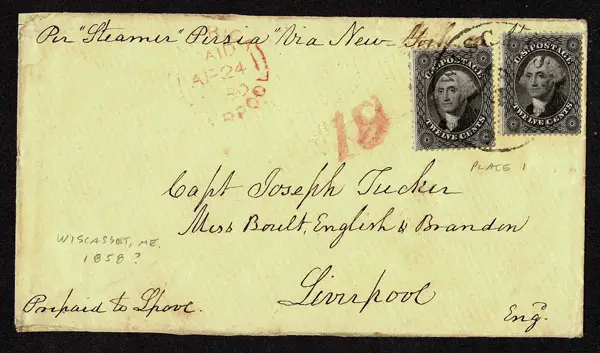 Per "Steamer" Persia "Via New York
AP 24
POOL
19
U.S. POSTAGE
TWELVE CENTS
U.S. POSTAGE
TWELVE CENTS
PLATE 1
Capt Joseph Tucker
Miss Boult, English & Brandon
WISCASSET, ME.
1858?
Liverpool
Prepaid to Lpool.
Eng.